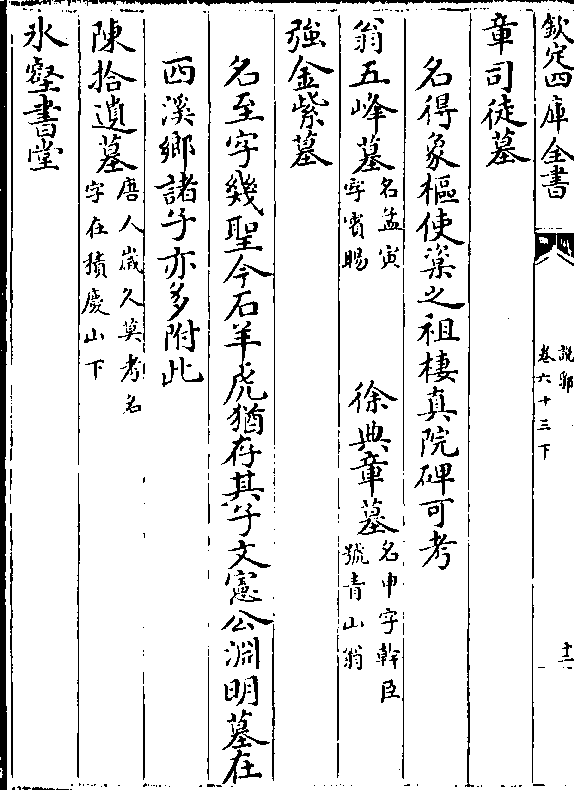 欽定四庫全書
說郛
卷六十三下
十二
章司徒墓
名得象樞使楶之祖棲真院碑可考
翁五峰墓名孟寅
字賓暘
徐典章墓名申字幹臣
號青山翁
強金紫墓
名至字幾聖今石羊虎猶存其子文憲公淵明墓在
西溪鄉諸子亦多附此
陳拾遺墓唐人歲久莫考名
字在積慶山下
氷壑書堂